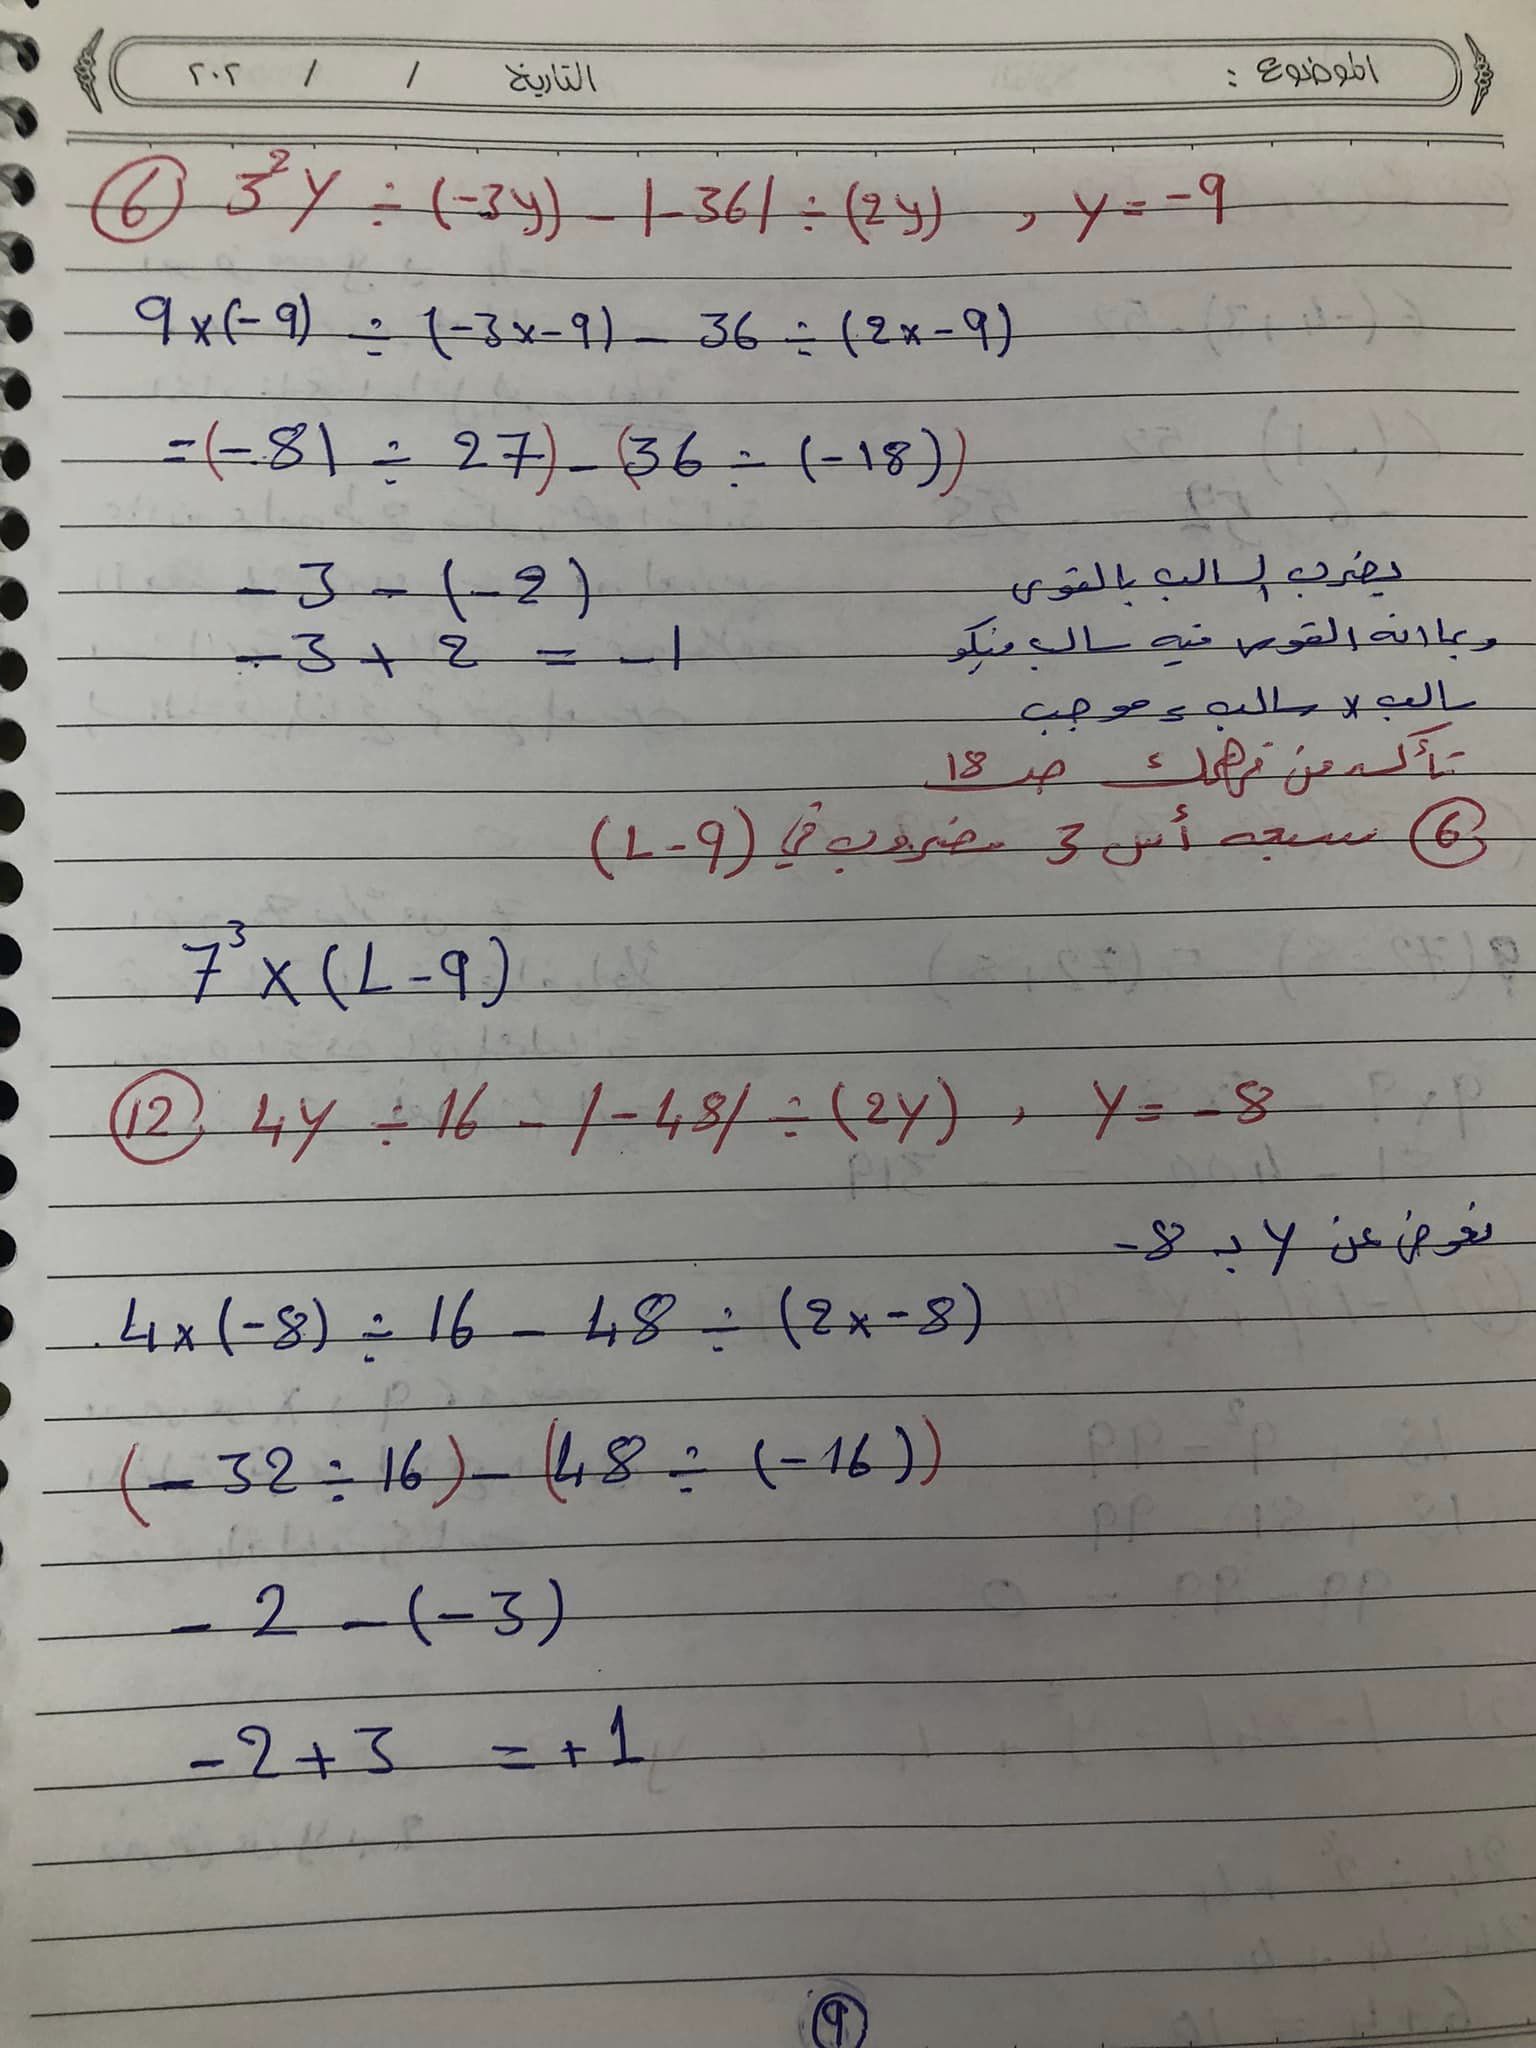 الموضوع : التاريخ / / ٢٠٢
⑥ 3²y ÷ (-3y) - |-36| ÷ (2y) , y = -9
9 x (-9) ÷ (-3x-9) - 36 ÷ (2x-9)
= (-81 ÷ 27) - (36 ÷ (-18))
- 3 - (-2) يضرب السالب بالقوس
- 3 + 2 = -1 وبما انه القوس فيه سالب فيكو
سالب x سالب = موجب
تأكد من فهمك صـ 18
⑥ سبعه أس 3 مضروب في (L-9)
7³ x (L-9)
⑫ 4y ÷ 16 - |-48| ÷ (2y) , y = -8
نعوض عن y بـ 8-
4 x (-8) ÷ 16 - 48 ÷ (2x-8)
(- 32 ÷ 16) - (48 ÷ (-16))
- 2 - (-3)
- 2 + 3 = +1
٩